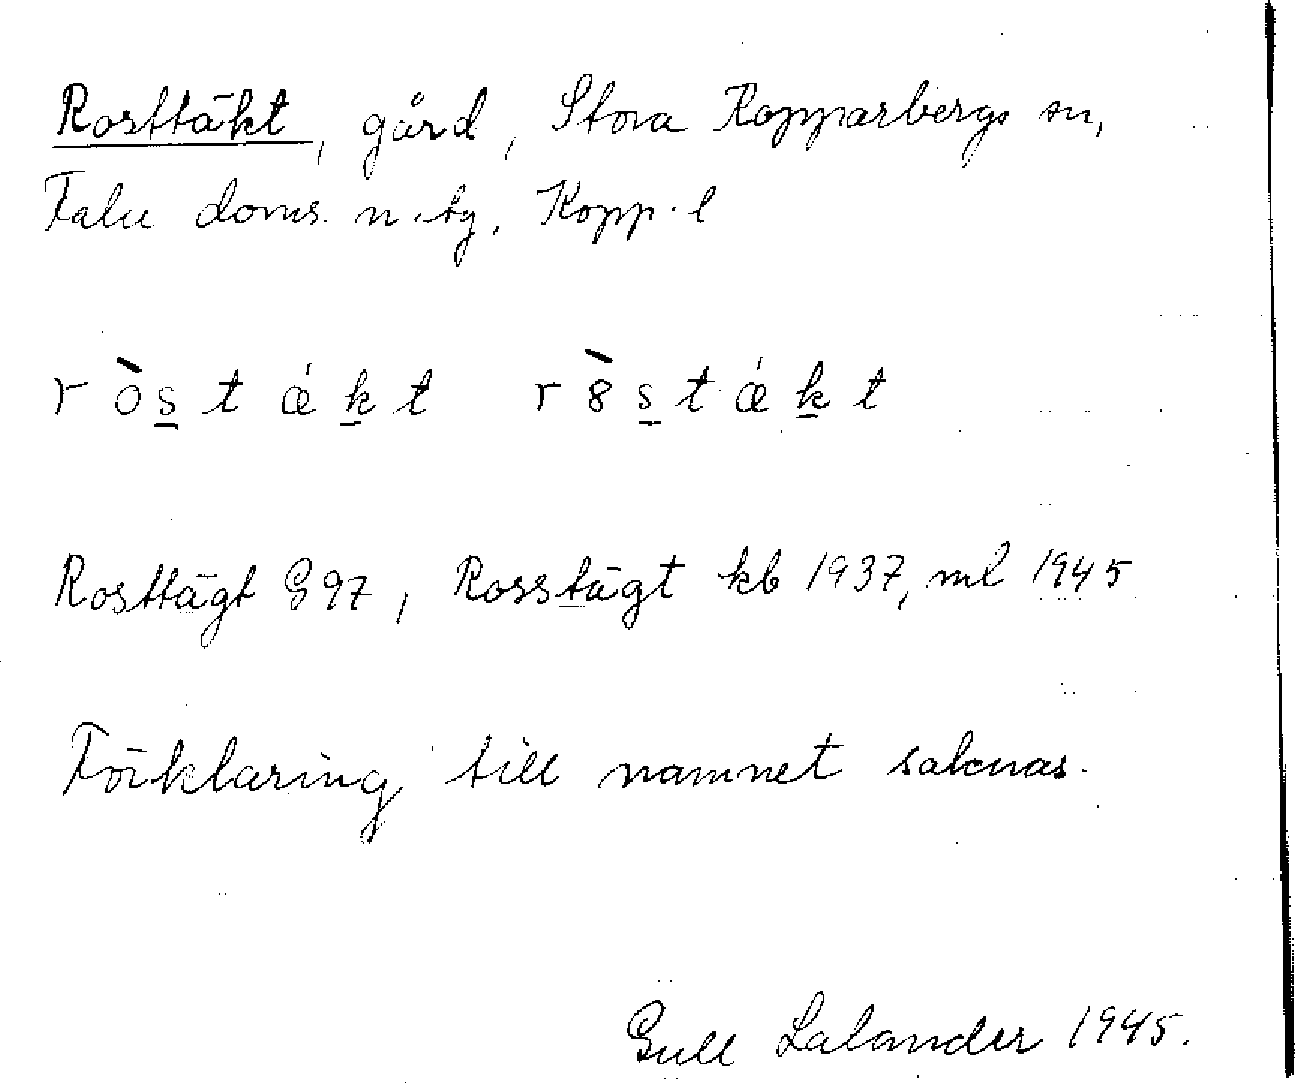 Rosttäkt, gård, Stora Kopparbergs sn,
Falu doms. n. tg, Kopp. l
r ò s t ǽ k t r 8̀ s t ǽ k t
Rosttägt G 97, Rosstägt kb 1937, ml 1945
Förklaring till namnet saknas.
Gull Lalander 1945.